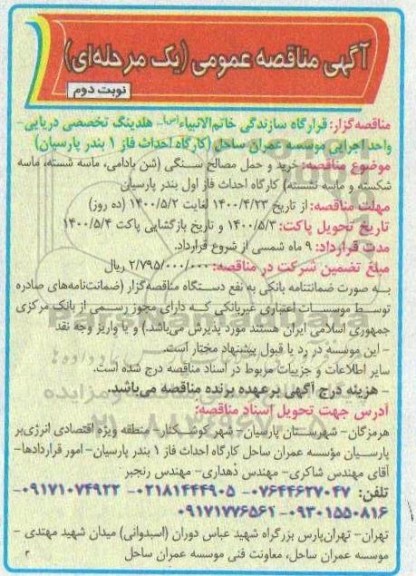 آگهی مناقصه عمومی (یک مرحله‌ای)
نوبت دوم
مناقصه‌گزار: قرارگاه سازندگی خاتم‌الانبیاء(ص)- هلدینگ تخصصی دریایی-
واحد اجرایی موسسه عمران ساحل (کارگاه احداث فاز ۱ بندر پارسیان)
موضوع مناقصه: خرید و حمل مصالح سنگی (شن بادامی، ماسه شسته، ماسه
شکسته و ماسه نشسته) کارگاه احداث فاز اول بندر پارسیان
مهلت مناقصه: از تاریخ ۱۴۰۰/۴/۲۳ لغایت ۱۴۰۰/۵/۲ (ده روز)
تاریخ تحویل پاکت: ۱۴۰۰/۵/۳ و تاریخ بازگشایی پاکت ۱۴۰۰/۵/۴
مدت قرارداد: ۹ ماه شمسی از شروع قرارداد.
مبلغ تضمین شرکت در مناقصه: ۲/۷۹۵/۰۰۰/۰۰۰ ریال
به صورت ضمانتنامه بانکی به نفع دستگاه مناقصه‌گزار (ضمانت‌نامه‌های صادره
توسط موسسات اعتباری غیربانکی که دارای مجوز رسمی از بانک مرکزی
جمهوری اسلامی ایران هستند مورد پذیرش می‌باشد.) و یا واریز وجه نقد
- این موسسه در رد یا قبول پیشنهاد مختار است.
سایر اطلاعات و جزییات مربوط در اسناد مناقصه درج شده است.
- هزینه درج آگهی بر عهده برنده مناقصه می‌باشد.
آدرس جهت تحویل اسناد مناقصه:
هرمزگان- شهرستان پارسیان- شهر کوشکنار- منطقه ویژه اقتصادی انرژی‌بر
پارسیان مؤسسه عمران ساحل کارگاه احداث فاز ۱ بندر پارسیان- امور قراردادها-
آقای مهندس شاکری- مهندس دهداری- مهندس رنجبر
تلفن: ۰۷۶۴۴۶۲۷۰۴۷- ۰۲۱۸۱۴۴۴۹۰۵- ۰۹۱۷۱۰۷۴۹۲۲-
۰۹۳۰۱۵۵۰۸۱۶- ۰۹۱۷۱۷۷۶۵۶۲
تهران- تهران‌پارس بزرگراه شهید عباس دوران (اسبدوانی) میدان شهید مهتدی -
موسسه عمران ساحل، معاونت فنی موسسه عمران ساحل